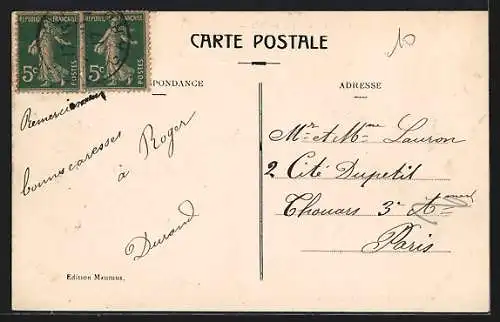 RÉPUBLIQUE FRANÇAISE RÉPUBLIQUE FRANÇAISE
5c POSTES 5c POSTES
CARTE POSTALE
10
PONDANCE
ADRESSE
Remerciements
bonnes caresses
à Roger
Durand
Mr et Mme Lauron
2 Cité Dupetit
Thouars 3e Arment
Paris
Edition Maumus.